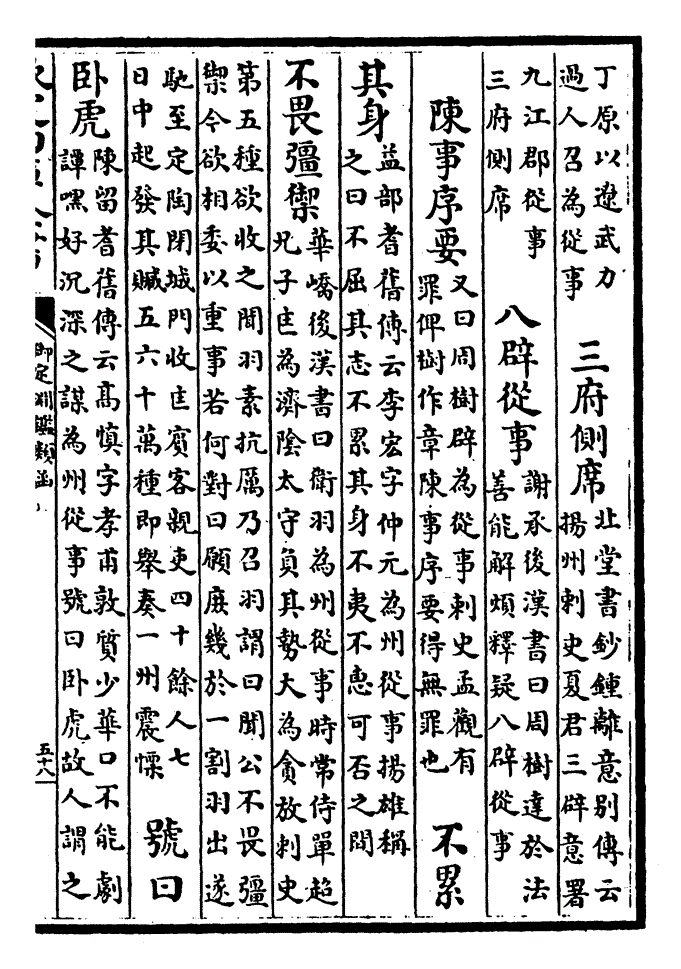 丁原以遼武力
過人召為從事
三府側席
北堂書鈔鍾離意别傳云
揚州刺史夏君三辟意署
九江郡從事
三府側席
八辟從事
謝承後漢書曰周樹達於法
善能解煩釋疑八辟從事
陳事序要
又曰周樹辟為從事刺史孟觀有
罪俾樹作章陳事序要得無罪也
不累
其身
益部耆舊傳云李宏字仲元為州從事揚雄稱
之曰不屈其志不累其身不夷不惠可否之間
不畏彊禦
華嶠後漢書曰衛羽為州從事時常侍單超
兄子匡為濟陰太守負其勢大為貪放刺史
第五種欲收之聞羽素抗厲乃召羽謂曰聞公不畏彊
禦今欲相委以重事若何對曰願庶幾於一割羽出遂
馳至定陶閉城門收匡賓客親吏四十餘人七
日中起發其贓五六十萬種即舉奏一州震慄
號曰
卧虎
陳留耆舊傳云髙慎字孝甫敦質少華口不能劇
譚嘿好沉深之謀為州從事號曰卧虎故人謂之
御定淵鑑類函
五十八